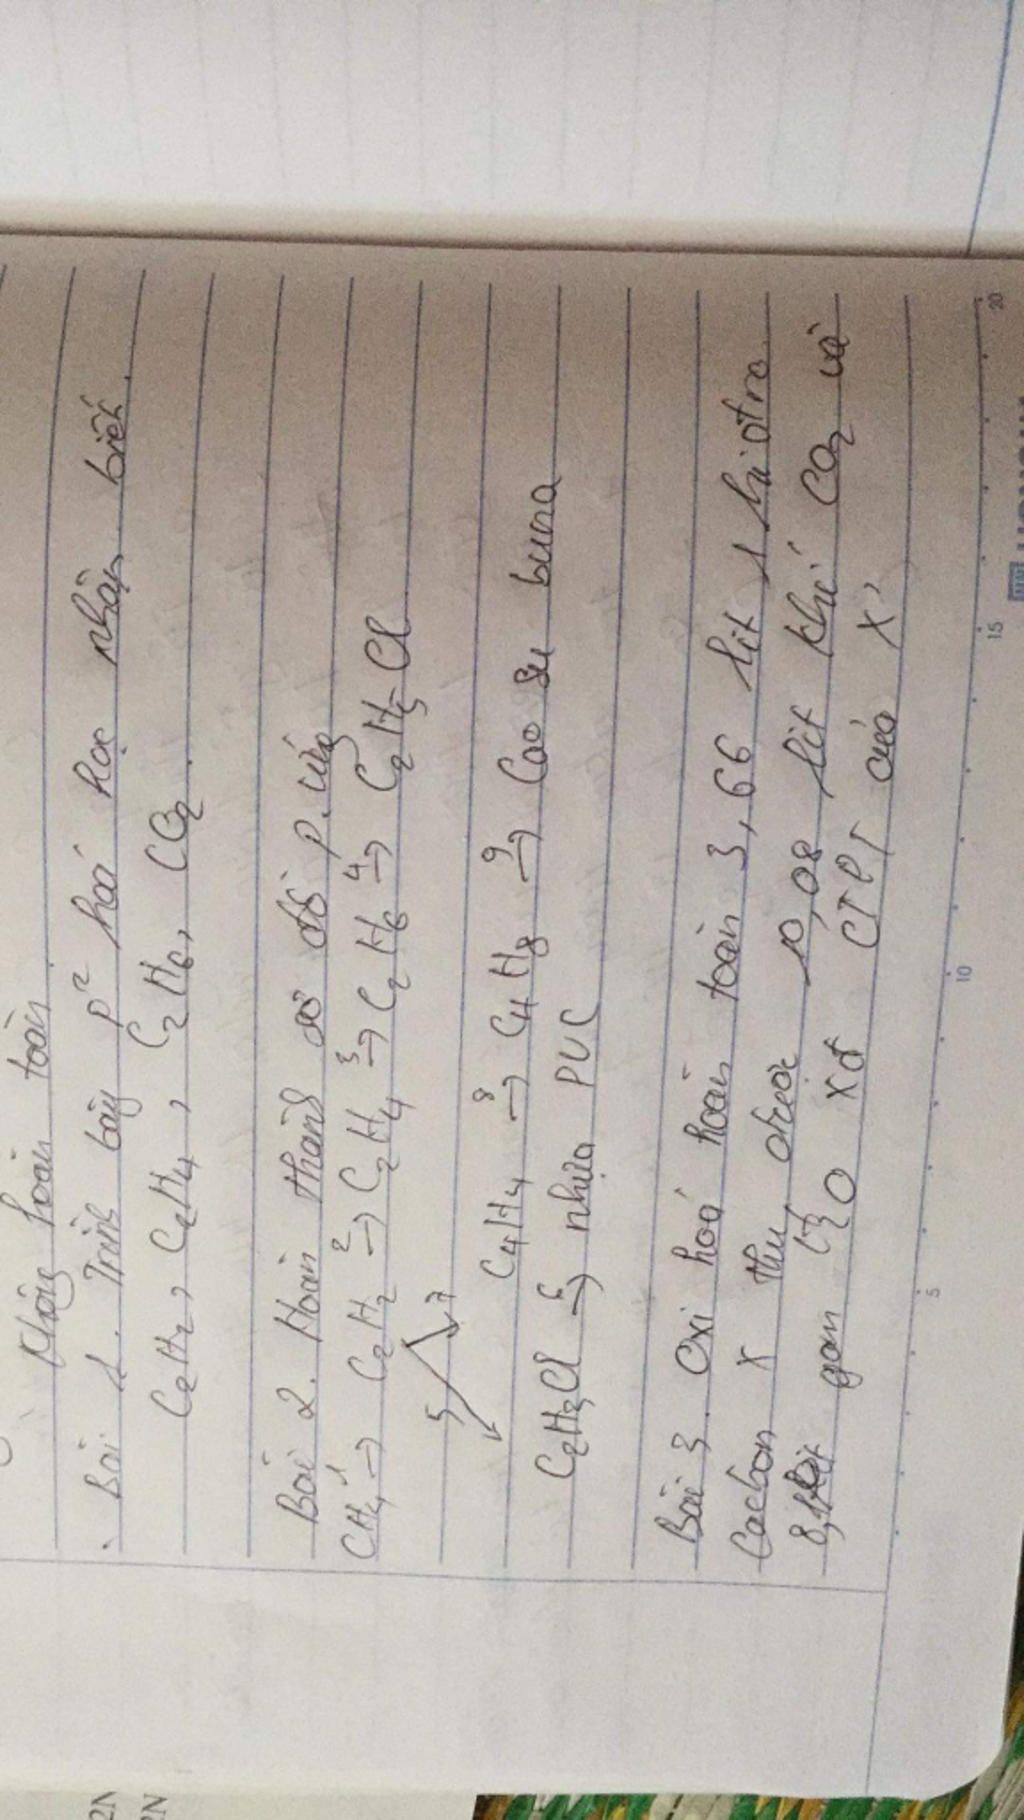 không hoàn toàn
Bài 1. Trình bày p² hoá học nhận biết.
C₂H₂, C₂H₄, C₂H₆, CO₂.
Bài 2. Hoàn thành sơ đồ p.ứng
CH₄ →¹ C₂H₂ →² C₂H₄ →³ C₂H₆ →⁴ C₂H₅Cl
5 7
C₄H₄ →⁸ C₄H₈ →⁹ Cao su buna
C₂H₃Cl →⁶ nhựa PVC
Bài 3. Oxi hoá hoàn toàn 3,66 lít 1 hiđro
Cacbon X thu được 10,08 lít khí CO₂ và
gam H₂O xđ CTPT của X?
5
10
15
20
2N
2N